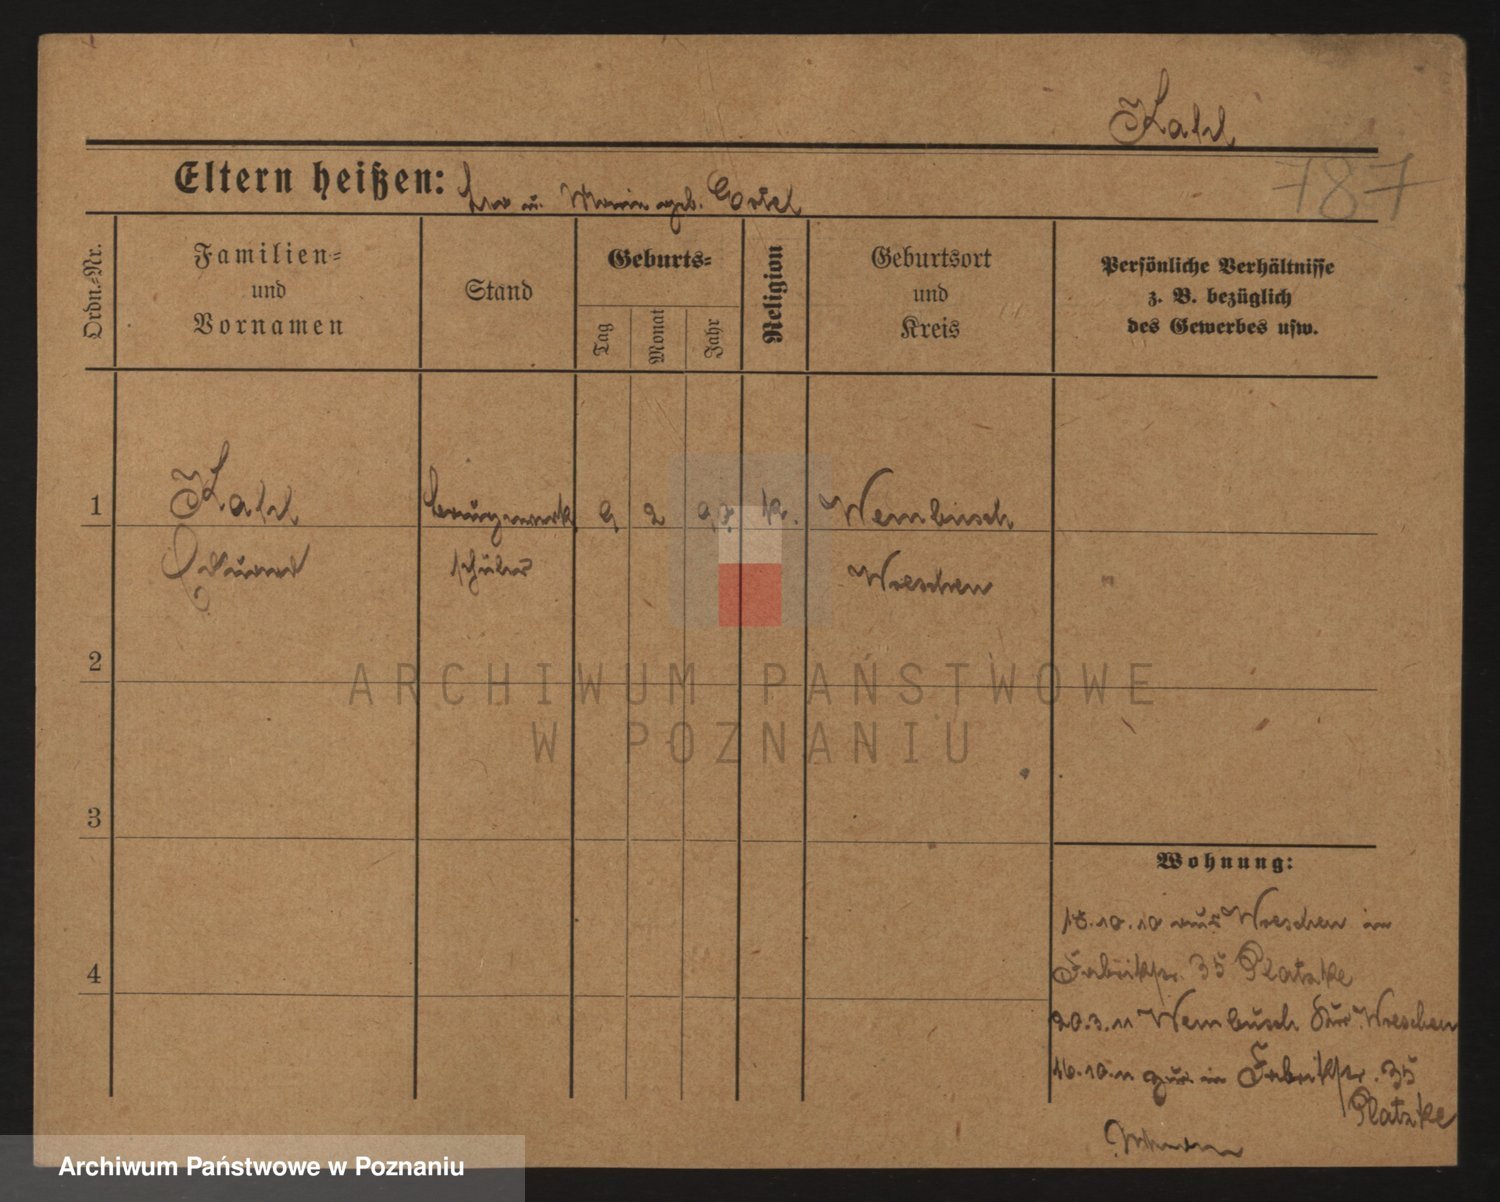 Kahl
Eltern heißen:
geb.
787
Ordn.-Nr.
Familien=
und
Vornamen
Stand
Geburts=
Tag
Monat
Jahr
Religion
Geburtsort
und
Kreis
Persönliche Verhältnisse
z. B. bezüglich
des Gewerbes usw.
1
Kahl
Baugewerk
9
2
k.
Wembusch
schüler
Wreschen
2
3
4
Wohnung:
18.10.10 aus Wreschen in
Fabrikstr. 35 Platzke
20.3.11 Wembusch Kr. Wreschen
16.10.11 zur. in Fabrikstr. 35
Platzke
ARCHIWUM PAŃSTWOWE
W POZNANIU
Archiwum Państwowe w Poznaniu